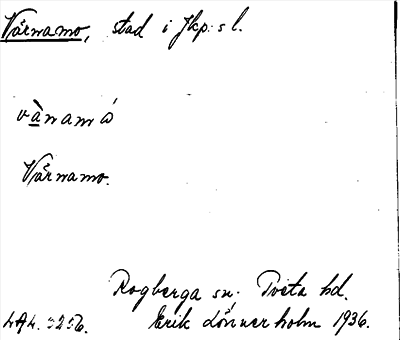 Värnamo, stad i Jkp:s l.
vànamó
Värnamo.
Rogberga sn. Tveta hd.
Erik Lönnerholm 1936.